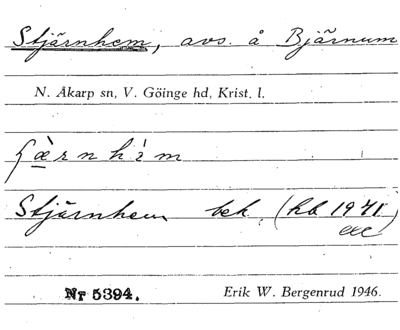 Stjärnhem, avs. å Bjärnum
N. Åkarp sn, V. Göinge hd, Krist. l.
ʃæ̀rnhèm
Stjärnhem bek. (hb 1941
etc)
Nr 5394. Erik W. Bergenrud 1946.